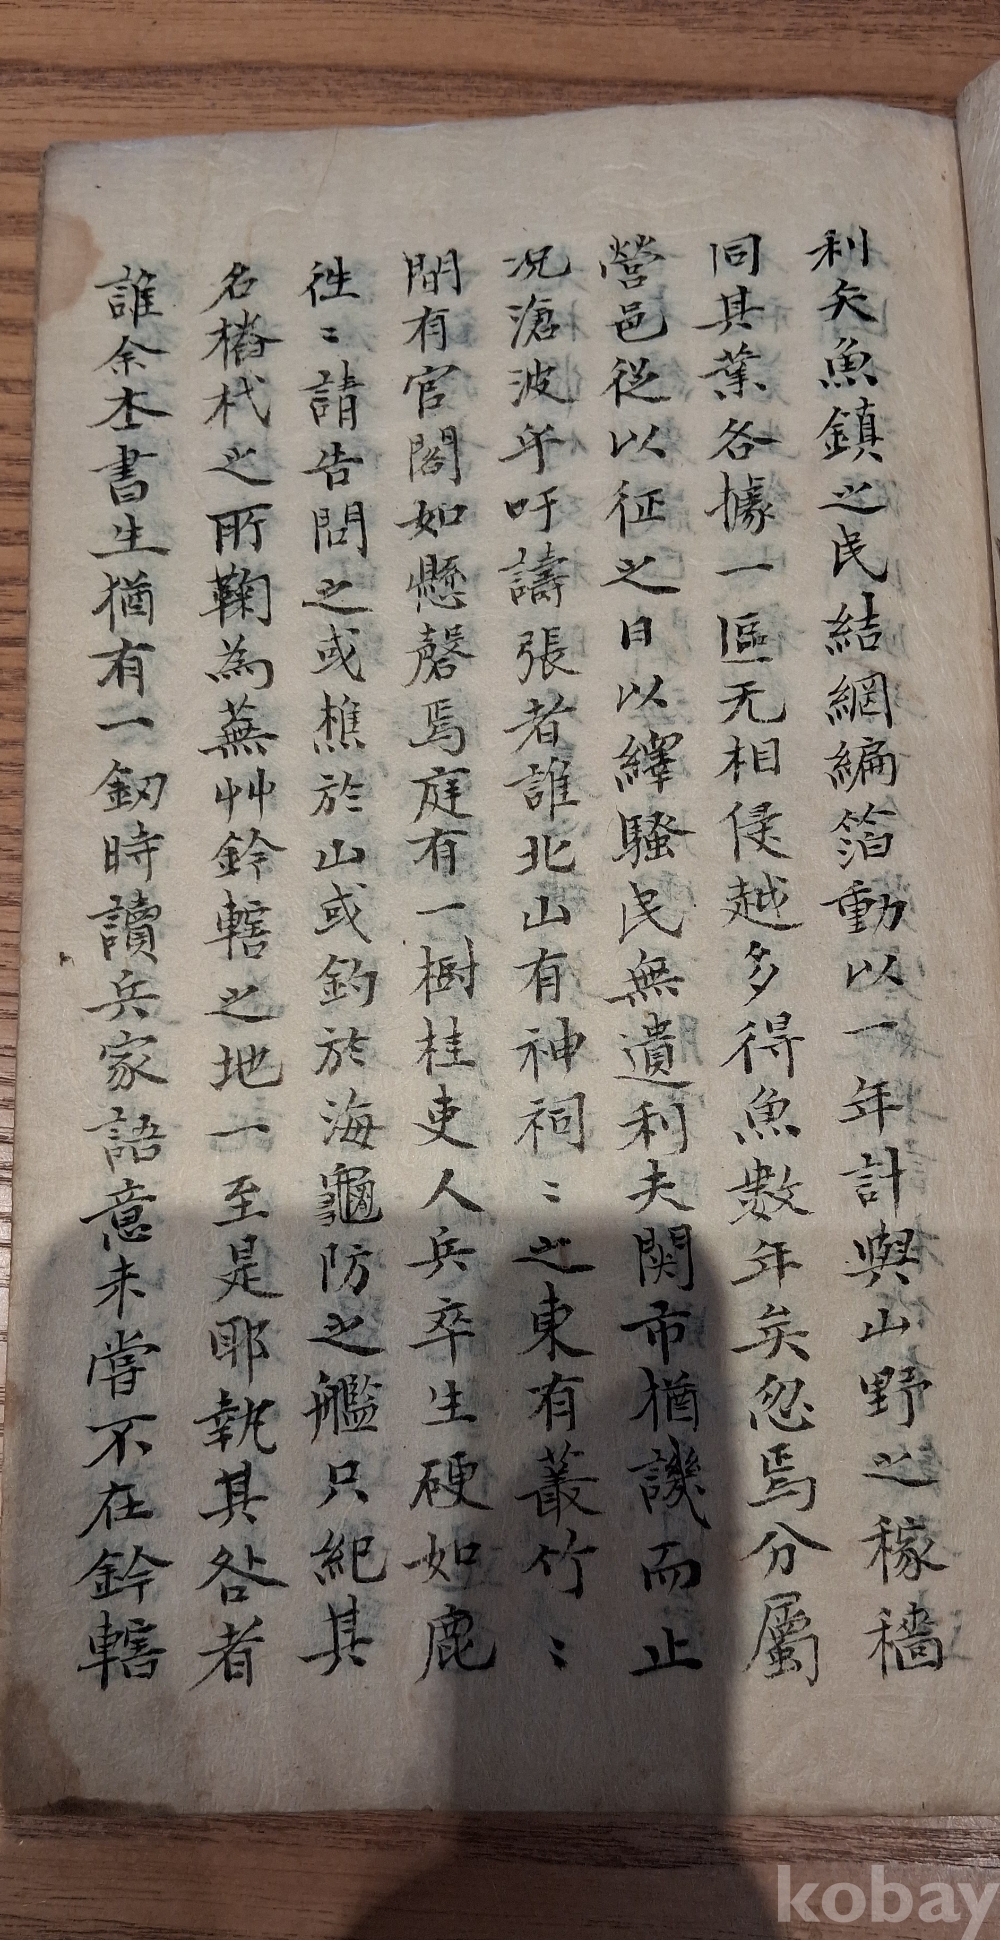 利矣魚鎮之民結網編箔動以一年計與山野之稼穡
同其業各據一區无相侵越多得魚數年矣忽焉分屬
營邑從以征之日以繹騷民無遺利夫関市猶譏而止
况滄波乎吁譸張者誰北山有神祠〻之東有叢竹〻
間有官閣如懸磬焉庭有一樹桂吏人兵卒生硬如鹿
徃〻請告問之或樵於山或釣於海龜防之艦只紀其
名樁杙之所鞠為蕪艸鈴轄之地一至是耶執其咎者
誰余本書生猶有一釰時讀兵家語意未嘗不在鈐轄
kobay